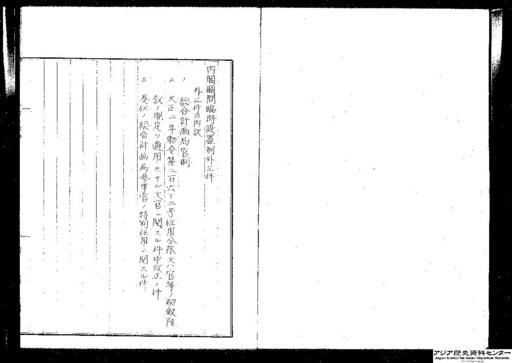 内閣顧問臨時設置制外三件
外三件の内訳
1 綜合計画局官制
2 大正二年勅令第二百六十二号任用分限又ハ官等ノ初叙陞
叙ノ規定ヲ適用セサル文官ニ関スル件中改正ノ件
3 綜合計画局参事官ノ特別任用ニ関スル件
アジア歴史資料センター
Japan Center for Asian Historical Records